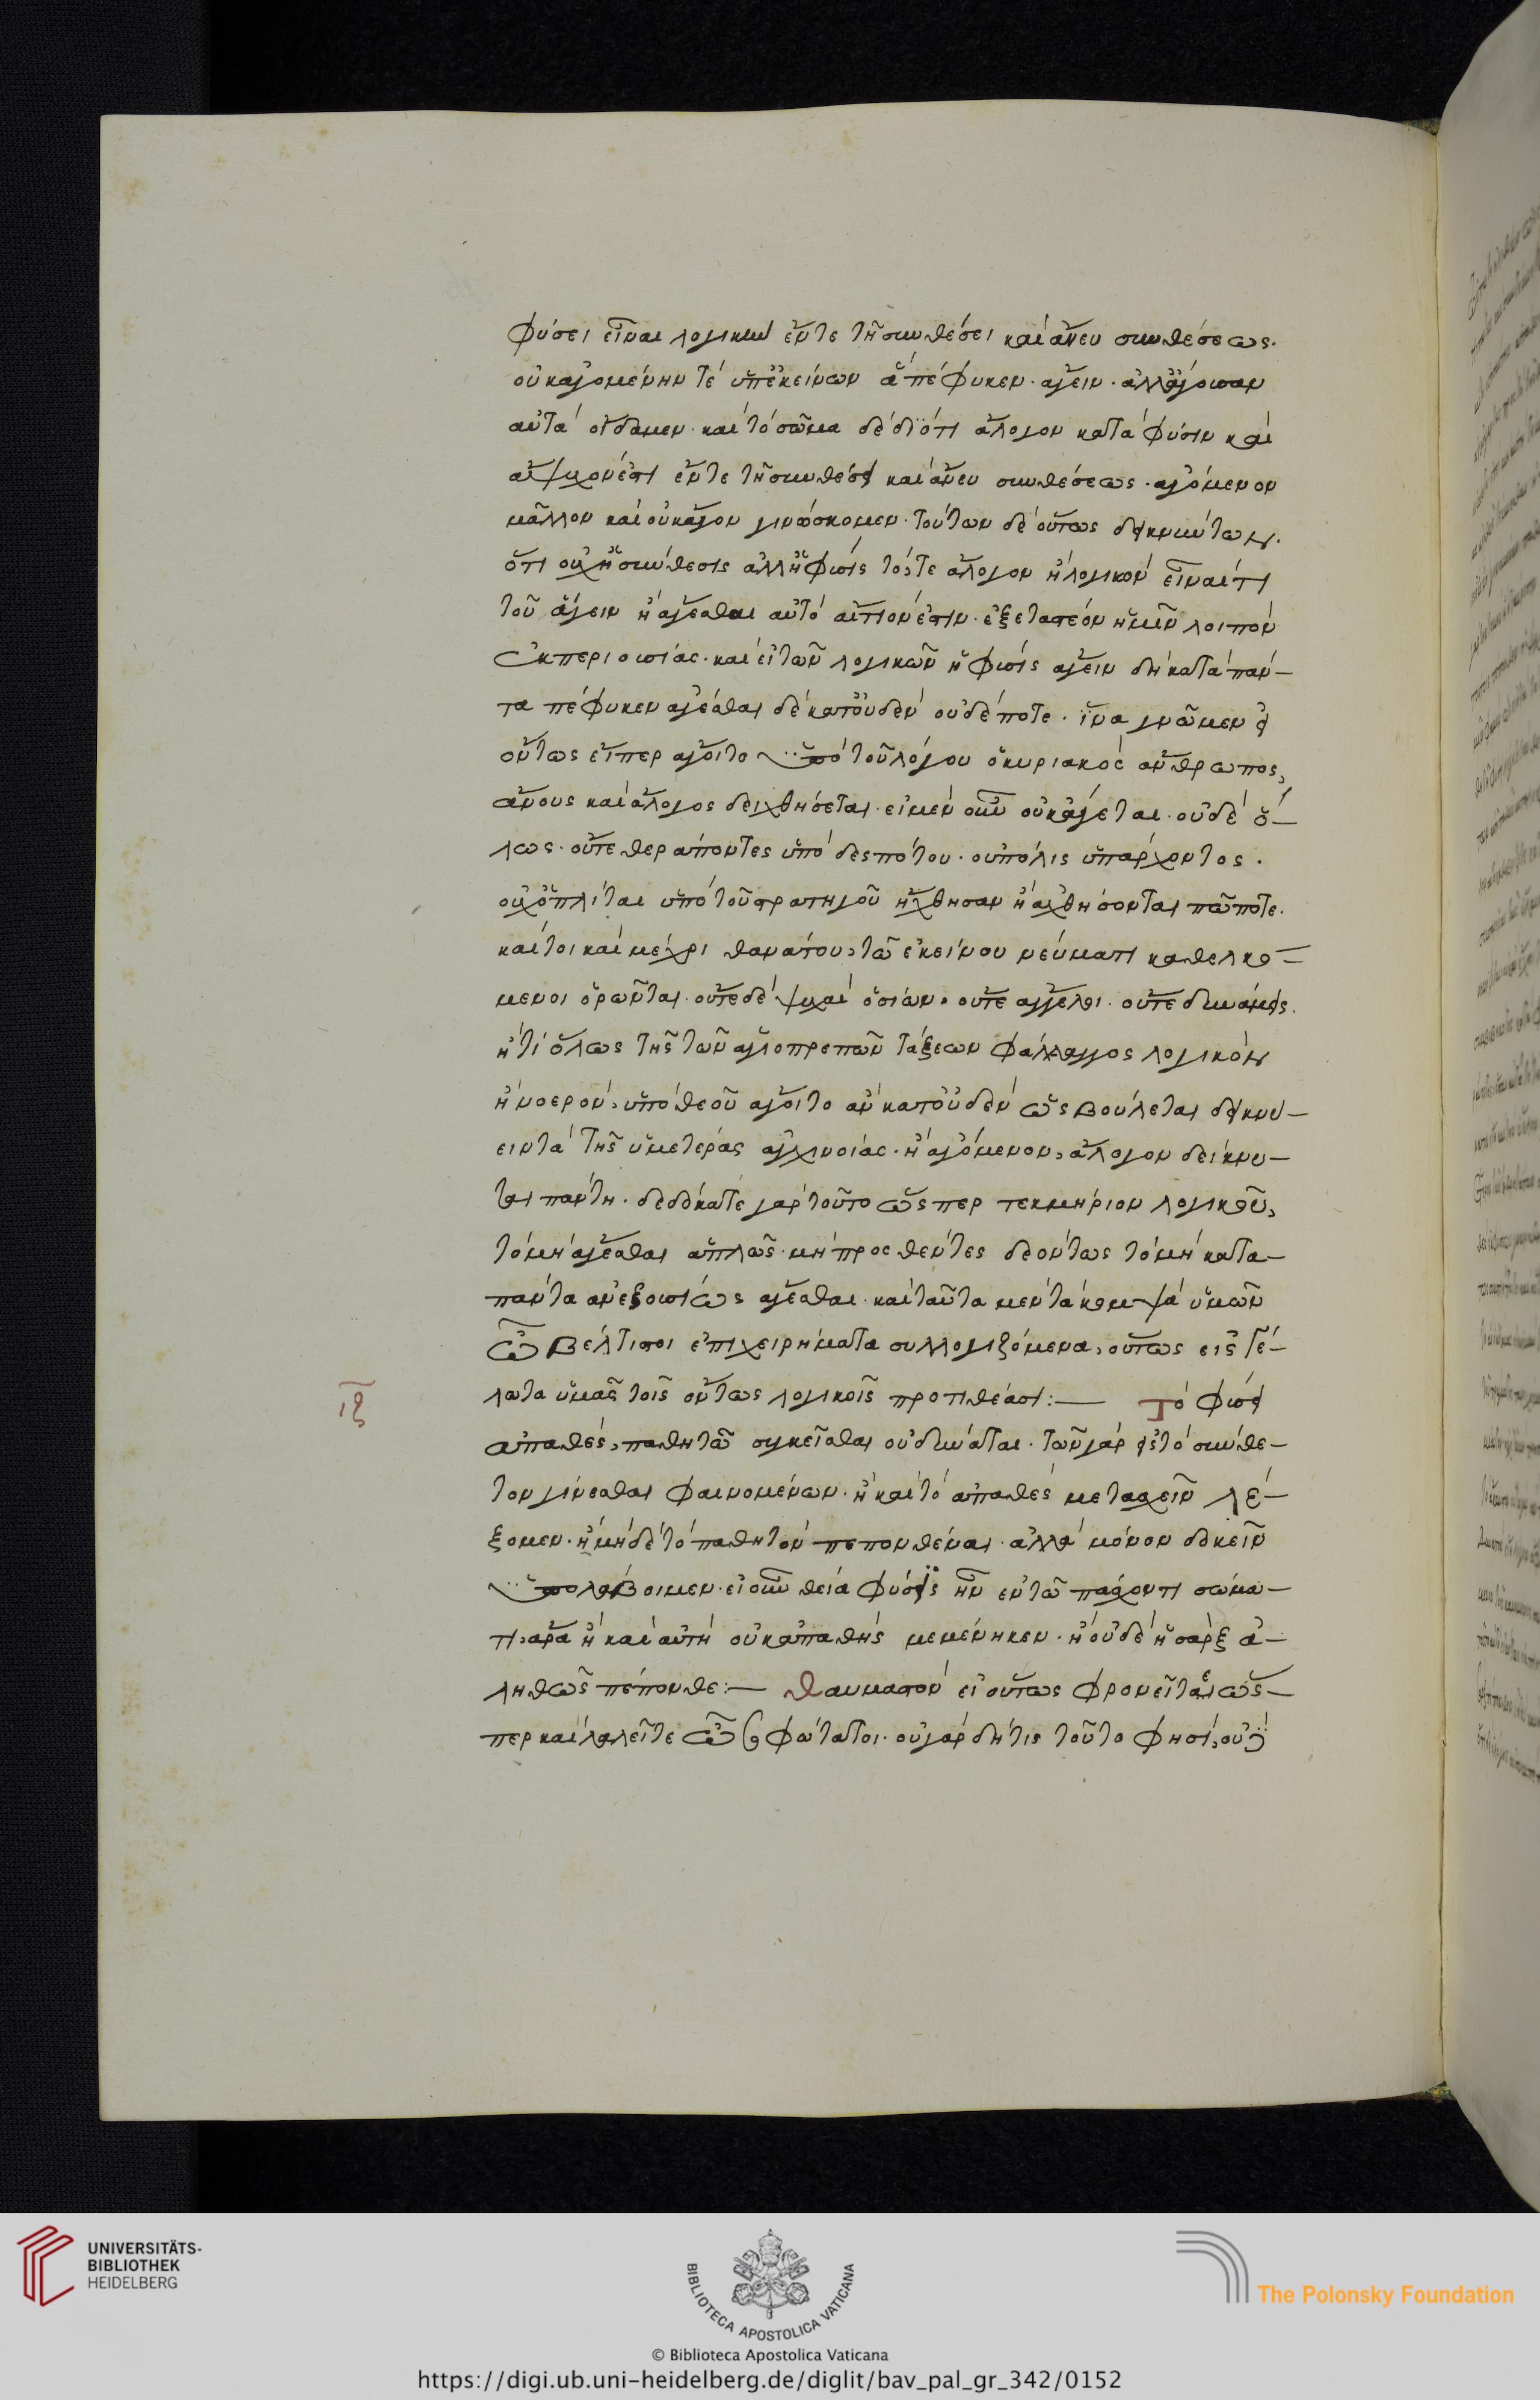 φύσει εἶναι λογικὴν ἔν τε τῆ συνθέσει καὶ ἄνευ συνθέσεως.
οὐκ ἀγομένην τὲ ὑπ' ἐκείνων ἃ πέφυκεν ἄγειν. ἀλλ' ἄγουσαν
αὐτὰ οἴδαμεν. καὶ τὸ σῶμα δὲ διότι ἄλογον κατὰ φύσιν καὶ
ἄψυχον ἐστὶ ἔν τε τῆ συνθέσει καὶ ἄνευ συνθέσεως. ἀγόμενον
μᾶλλον καὶ οὐκ ἄγον γινώσκομεν. τούτων δὲ οὕτως δεικνύντων.
ὅτι οὐχ ἡ σύνθεσις ἀλλ' ἡ φύσις τό, τε ἄλογον ἢ λογικὸν εἶναί τι
τοῦ ἄγειν ἢ ἄγεσθαι αὐτὸ αἴτιον ἐστιν. ἐξεταστέον ἡμῖν λοιπὸν
ἐκ περιουσίας. καὶ εἰ τῶν λογικῶν ἡ φύσις ἄγειν δὴ κατὰ πάν-
τα πέφυκεν ἄγεσθαι δὲ κατ' οὐδὲν οὐδέποτε. ἵνα γνῶμεν εἰ
ὄντως εἴπερ ἄγοιτο ὑπὸ τοῦ λόγου ὁ κυριακὸς ἄνθρωπος,
ἄνους καὶ ἄλογος δειχθήσεται. εἰ μὲν οὖν οὐκ ἄγεται. οὐδὲ ὅ-
λως. οὔτε θεράποντες ὑπὸ δεσπότου. οὐ πόλις ὑπάρχοντος.
οὐχ ὁπλίται ὑπὸ τοῦ στρατηγοῦ ἤχθησαν ἢ ἀχθήσονται πώποτε.
καίτοι καὶ μέχρι θανάτου, τῶ ἐκείνου νεύματι καθελκό-
μενοι ὁρῶνται. οὔτε δὲ ψυχαὶ ὁσίων. οὔτε ἄγγελοι. οὔτε δυνάμεις.
ἤ τι ὅλως τῆς τῶν ἁγιοπρεπῶν τάξεων φάλαγγος λογικὸν
ἢ νοερὸν, ὑπὸ θεοῦ ἄγοιτο ἂν κατ' οὐδὲν ὡς βούλεται δεικνύ-
ειν τὰ τῆς ὑμετέρας ἀγχινοίας. ἢ ἀγόμενον, ἄλογον δείκνυ-
ται πάντη. δεδώκατε γὰρ τοῦτο ὥσπερ τεκμήριον λογικοῦ,
τὸ μὴ ἄγεσθαι ἁπλῶς. μὴ προσθέντες δεόντως τὸ μὴ κατὰ
πάντα ἀνεξουσίως ἄγεσθαι. καὶ ταῦτα μὲν τὰ κομψὰ ὑμῶν
ὦ βέλτιστοι ἐπιχειρήματα συλλογιζόμενα, οὕτως εἰς γέ-
λωτα ὑμᾶς τοῖς ὄντως λογικοῖς προτιθέασι:— Τὸ φύσει
ιζ
ἀπαθὲς, παθητῶ συγκεῖσθαι οὐ δύναται. τῶν γὰρ εἰς τὸ σύνθε-
τον γίνεσθαι φαινομένων. ἢ καὶ τὸ ἀπαθὲς μετασχεῖν λέ-
ξομεν. ἢ μὴ δὲ τὸ παθητὸν πεπονθέναι. ἀλλὰ μόνον δοκεῖν
ὑπολάβοιμεν. εἰ οὖν θεία φύσις ἦν ἐν τῶ πάσχοντι σώμα-
τι, ἄρα ἢ καὶ αὐτὴ οὐκ ἀπαθὴς μεμένηκεν. ἢ οὐδὲ ἡ σὰρξ ἀ-
ληθῶς πέπονθε:— Θαυμαστὸν εἰ οὕτως φρονεῖται ὥς-
περ καὶ λαλεῖτε ὦ σοφώτατοι. οὐ γὰρ δή τις τοῦτο φησὶ, οὐχ
UNIVERSITÄTS-
BIBLIOTHEK
HEIDELBERG
BIBLIOTECA APOSTOLICA VATICANA
The Polonsky Foundation
© Biblioteca Apostolica Vaticana
https://digi.ub.uni-heidelberg.de/diglit/bav_pal_gr_342/0152